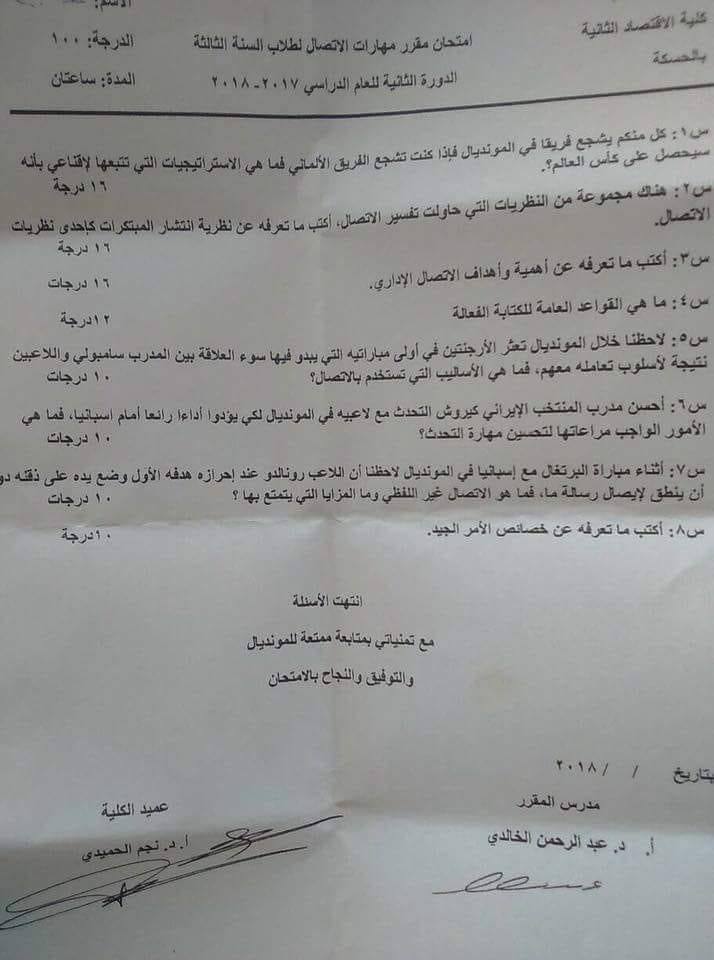 كلية الاقتصاد الثانية
بالحسكة
الاسم:
امتحان مقرر مهارات الاتصال لطلاب السنة الثالثة
الدرجة: ١٠٠
الدورة الثانية للعام الدراسي ٢٠١٧-٢٠١٨
المدة: ساعتان
س١: كل منكم يشجع فريقا في المونديال فإذا كنت تشجع الفريق الألماني فما هي الاستراتيجيات التي تتبعها لإقناعي بأنه
سيحصل على كأس العالم؟. ١٦ درجة
س٢: هناك مجموعة من النظريات التي حاولت تفسير الاتصال، أكتب ما تعرفه عن نظرية انتشار المبتكرات كإحدى نظريات
الاتصال. ١٦ درجة
س٣: أكتب ما تعرفه عن أهمية وأهداف الاتصال الإداري. ١٦ درجات
س٤: ما هي القواعد العامة للكتابة الفعالة ١٢درجة
س٥: لاحظنا خلال المونديال تعثر الأرجنتين في أولى مبارياته التي يبدو فيها سوء العلاقة بين المدرب سامبولي واللاعبين
نتيجة لأسلوب تعامله معهم، فما هي الأساليب التي تستخدم بالاتصال؟ ١٠ درجات
س٦: أحسن مدرب المنتخب الإيراني كيروش التحدث مع لاعبيه في المونديال لكي يؤدوا أداءا رائعا أمام اسبانيا، فما هي
الأمور الواجب مراعاتها لتحسين مهارة التحدث؟ ١٠ درجات
س٧: أثناء مباراة البرتغال مع إسبانيا في المونديال لاحظنا أن اللاعب رونالدو عند إحرازه هدفه الأول وضع يده على ذقنه دو
أن ينطق لإيصال رسالة ما، فما هو الاتصال غير اللفظي وما المزايا التي يتمتع بها ؟ ١٠ درجات
س٨: أكتب ما تعرفه عن خصائص الأمر الجيد. ١٠درجة
انتهت الأسئلة
مع تمنياتي بمتابعة ممتعة للمونديال
والتوفيق والنجاح بالامتحان
بتاريخ / / ٢٠١٨
مدرس المقرر
عميد الكلية
أ. د. عبد الرحمن الخالدي
أ. د. نجم الحميدي